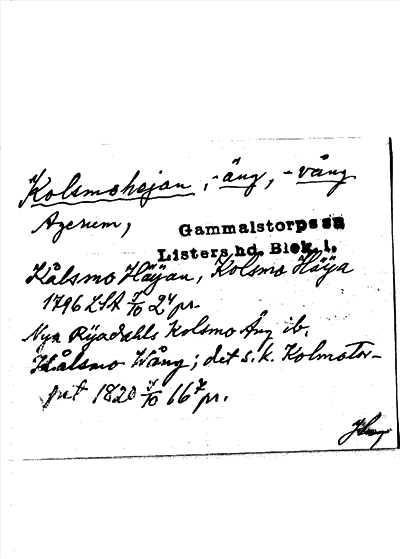 Kolsmohejan, -äng, -vång
Agerum,
Gammalstorps sn
Listers hd. Blek. l.
Kålsmo Häÿan, Kolsmo Häÿa
1796 LSA 7/10 24 pr.
Nya Ryadahls Kolsmo Äng ib.
Kålsmo Wång; det s. k. Kolmotor-
pet 1820 7/10 667 pr.